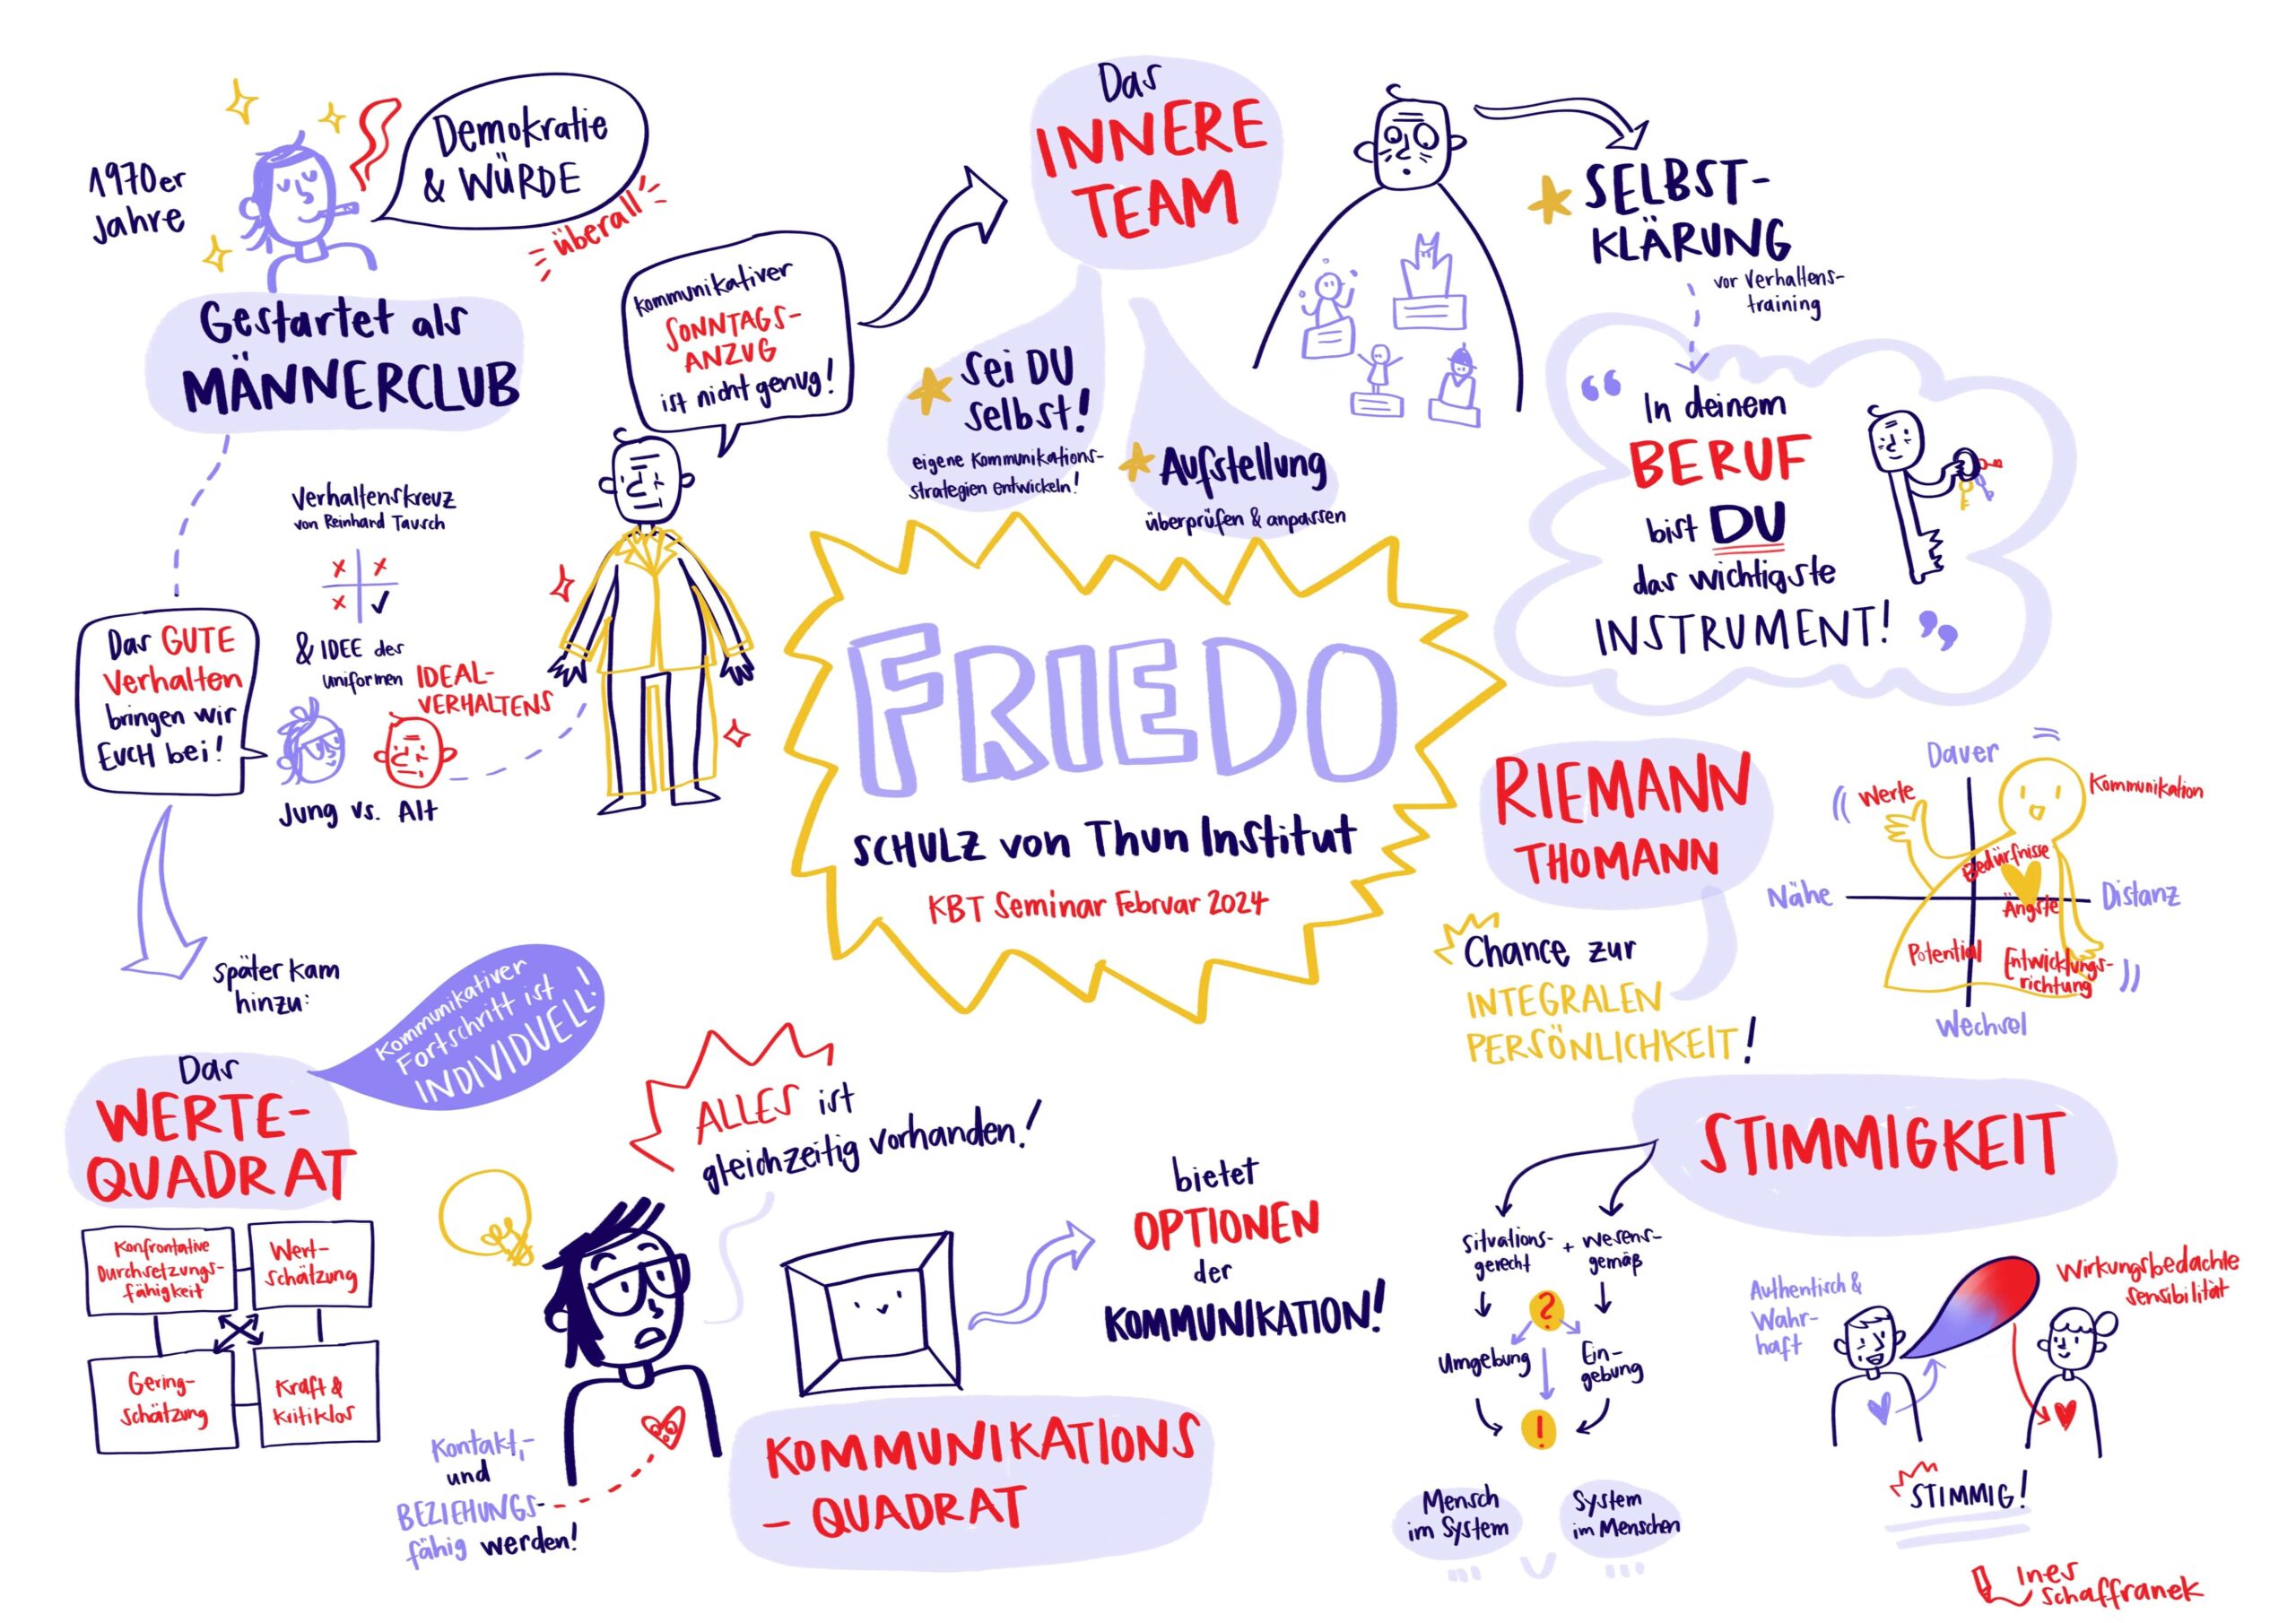 1970er
Jahre
Demokratie
& WÜRDE
überall
Gestartet als
MÄNNERCLUB
Verhaltenskreuz
von Reinhard Tausch
& IDEE des
uniformen IDEAL-
VERHALTENS
Das GUTE
Verhalten
bringen wir
EUCH bei!
Jung vs. Alt
kommunikativer
SONNTAGS-
ANZUG
ist nicht genug!
Das
INNERE
TEAM
Sei DU
selbst!
eigene Kommunikations-
strategien entwickeln!
Aufstellung
überprüfen & anpassen
SELBST-
KLÄRUNG
vor Verhaltens-
training
“ In deinem
BERUF
bist DU
das wichtigste
INSTRUMENT! ”
FRIEDO
SCHULZ von Thun Institut
KBT Seminar Februar 2024
RIEMANN
THOMANN
Chance zur
INTEGRALEN
PERSÖNLICHKEIT!
Dauer
Werte
Kommunikation
Bedürfnisse
Nähe
Distanz
Ängste
Potential
Entwicklungs-
richtung
Wechsel
später kam
hinzu:
Kommunikativer
Fortschritt ist
INDIVIDUELL!
Das
WERTE-
QUADRAT
Konfrontative
Durchsetzungs-
fähigkeit
Wert-
schätzung
Gering-
schätzung
Kraft &
Kritiklos
ALLES ist
gleichzeitig vorhanden!
Kontakt,-
und
BEZIEHUNGS-
fähig werden!
bietet
OPTIONEN
der
KOMMUNIKATION!
KOMMUNIKATIONS
- QUADRAT
STIMMIGKEIT
Situations-
gerecht
+
wesens-
gemäß
?
Umgebung
Ein-
gebung
!
Mensch
im System
System
im Menschen
Authentisch &
Wahr-
haft
Wirkungsbedachte
Sensibilität
STIMMIG!
Ines
Schaffranek